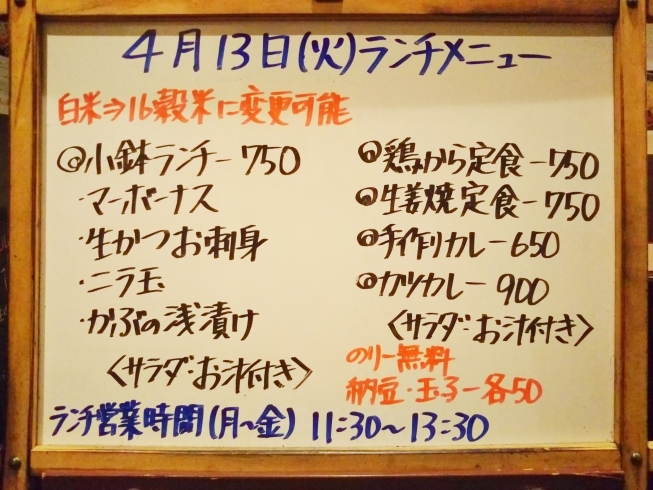 4月13日(火)ランチメニュー
白米⇒16穀米に変更可能
◎小鉢ランチー750
・マーボーナス
・生かつお刺身
・ニラ玉
・かぶの浅漬け
〈サラダ・お汁付き〉
◎鶏から定食ー750
◎生姜焼定食ー750
◎手作りカレー650
◎カツカレー900
〈サラダ・お汁付き〉
のりー無料
納豆・玉子ー各50
ランチ営業時間(月〜金) 11:30〜13:30